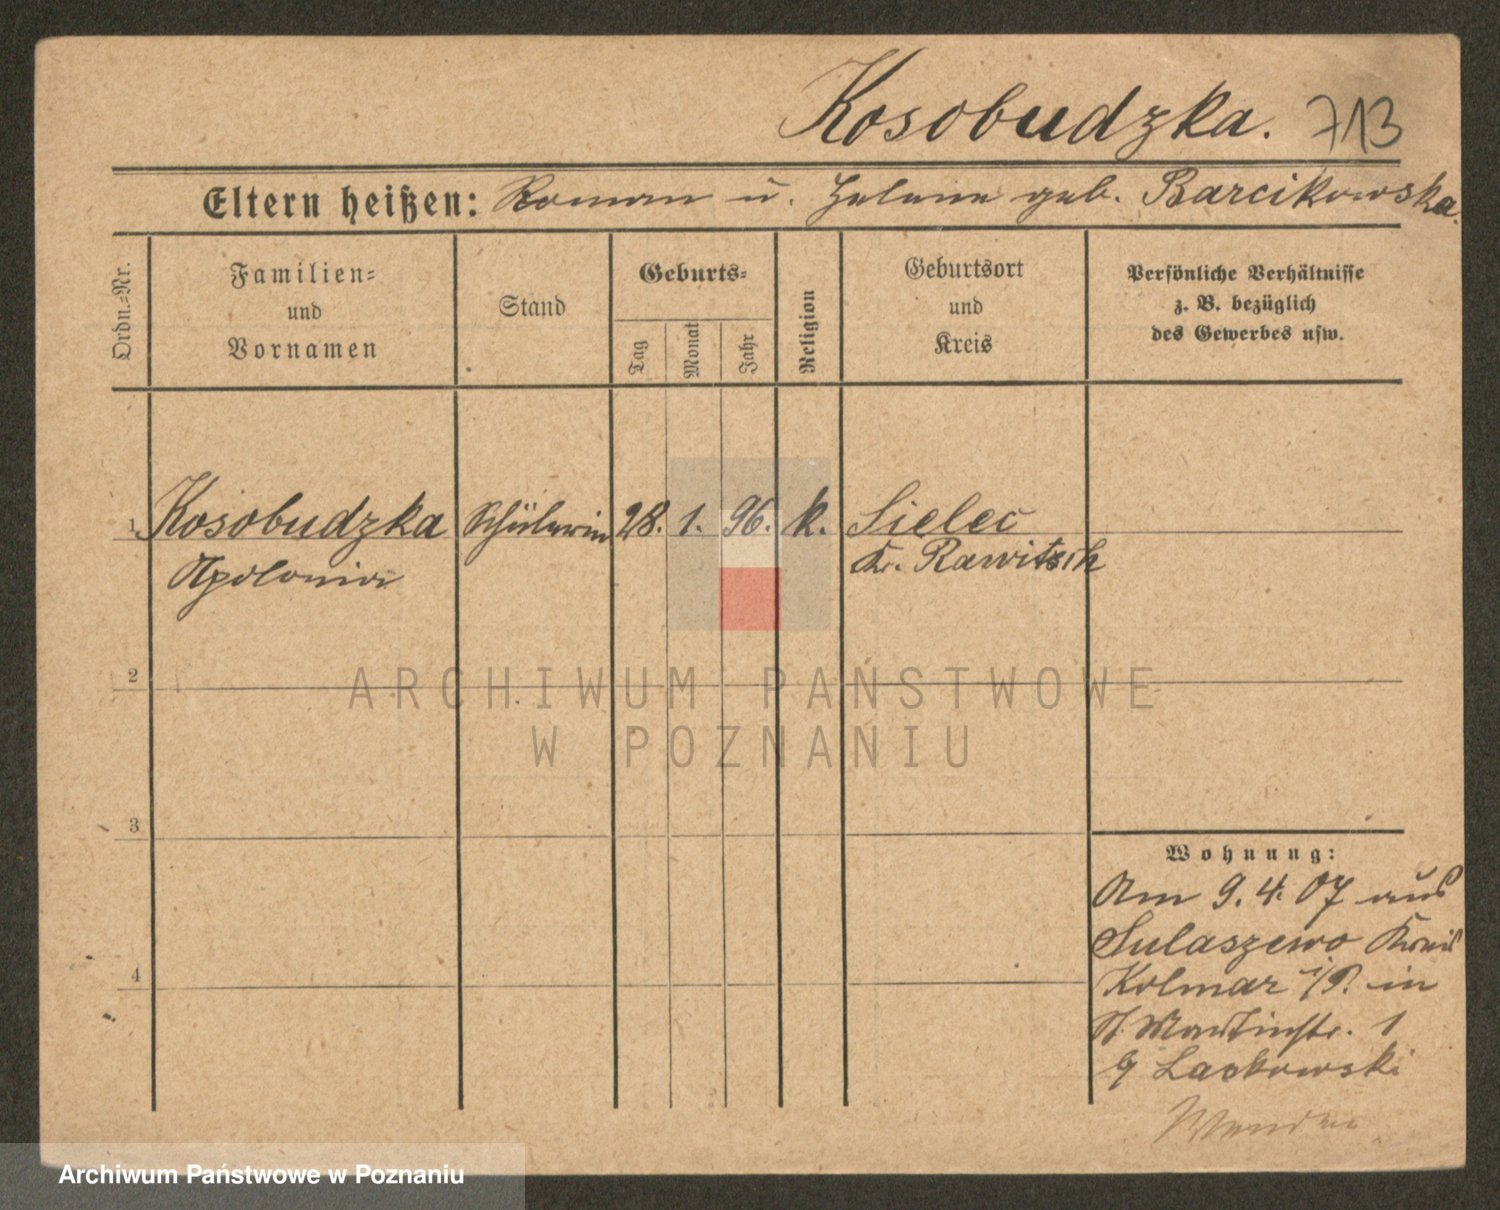 Kosobudzka. 713
Eltern heißen: Roman u. Helene geb. Barcikowska.
Ordn.=Nr.
Familien=
und
Vornamen
Stand
Geburts=
Tag
Monat
Jahr
Religion
Geburtsort
und
Kreis
Persönliche Verhältnisse
z. B. bezüglich
des Gewerbes usw.
1 Kosobudzka Schülerin 28. 1. 96. k. Sielec
Apolonia Kr. Rawitsch
2
ARCHIWUM PAŃSTWOWE
W POZNANIU
3
Wohnung:
Am 9. 4. 07 aus
Sulaszewo Kreis
4
Kolmar i/P. in
St. Martinstr. 1
Lackowski
Archiwum Państwowe w Poznaniu